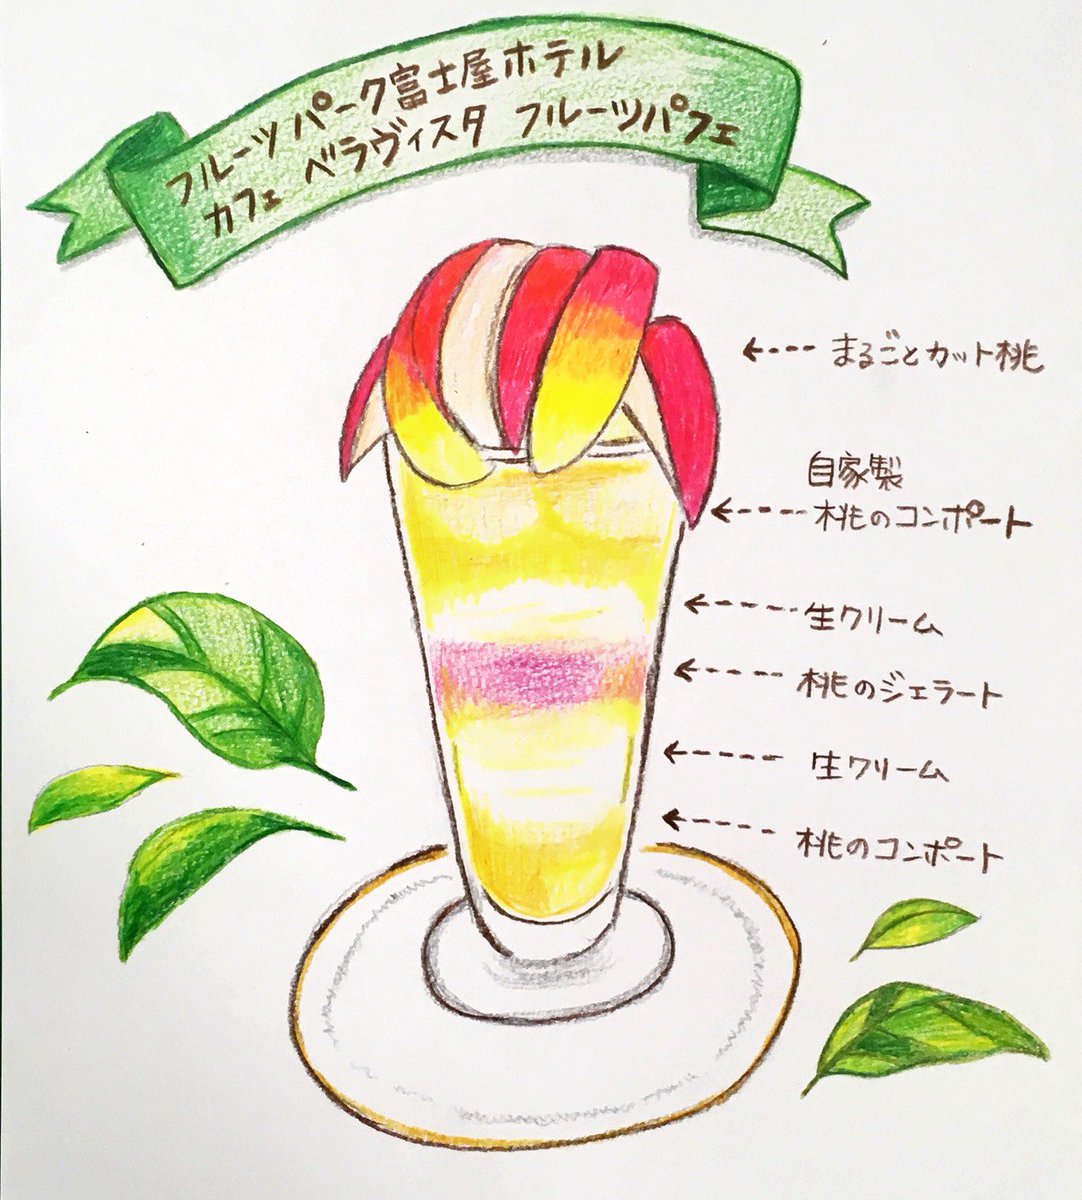 フルーツパーク富士屋ホテル
カフェ ベラヴィスタ フルーツパフェ
まるごとカット桃
自家製
桃のコンポート
生クリーム
桃のジェラート
生クリーム
桃のコンポート